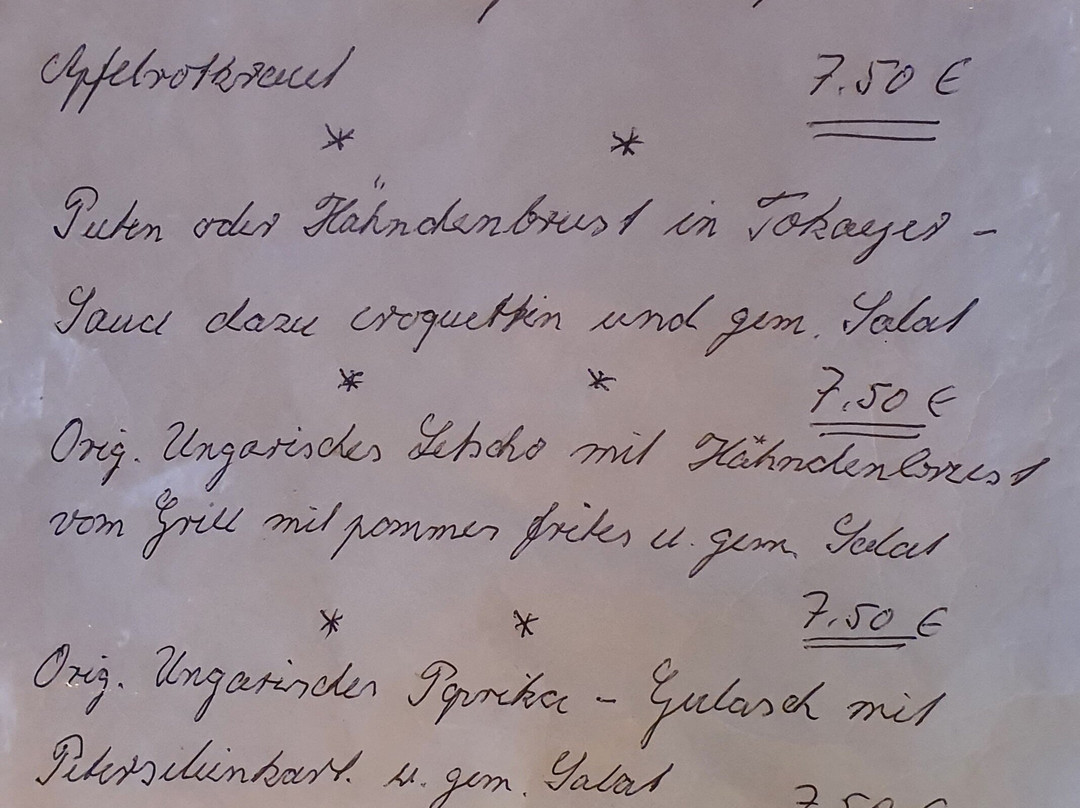 Apfelrotkraut 7.50 €
* *
Puten oder Hähnchenbrust in Tokayer -
Sauce dazu croquetten und gem. Salat
* * 7.50 €
Orig. Ungarisches Letscho mit Hähnchenbrust
vom Grill mit pommes frites u. gem. Salat
* * 7.50 €
Orig. Ungarisches Paprika - Gulasch mit
Petersilienkart. u. gem. Salat
7.50 €